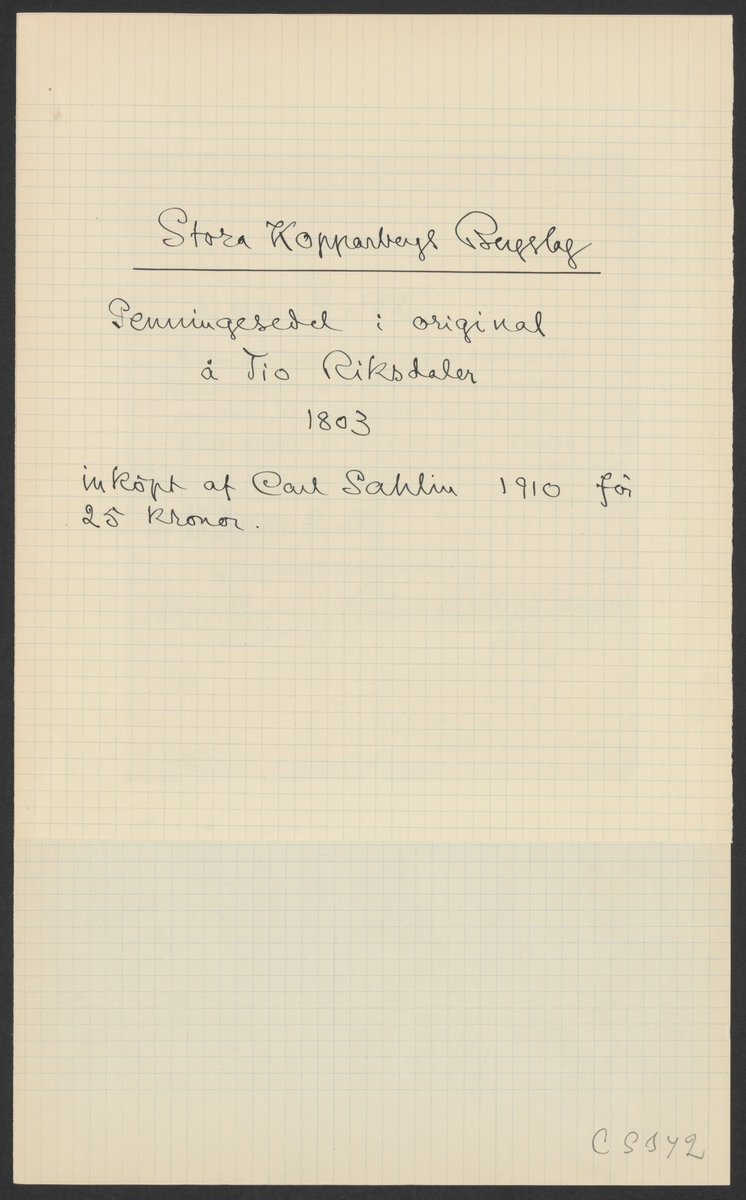 Stora Kopparbergs Bergslag
Penningesedel i original
å Tio Riksdaler
1803
inköpt af Carl Sahlin 1910 för
25 kronor.